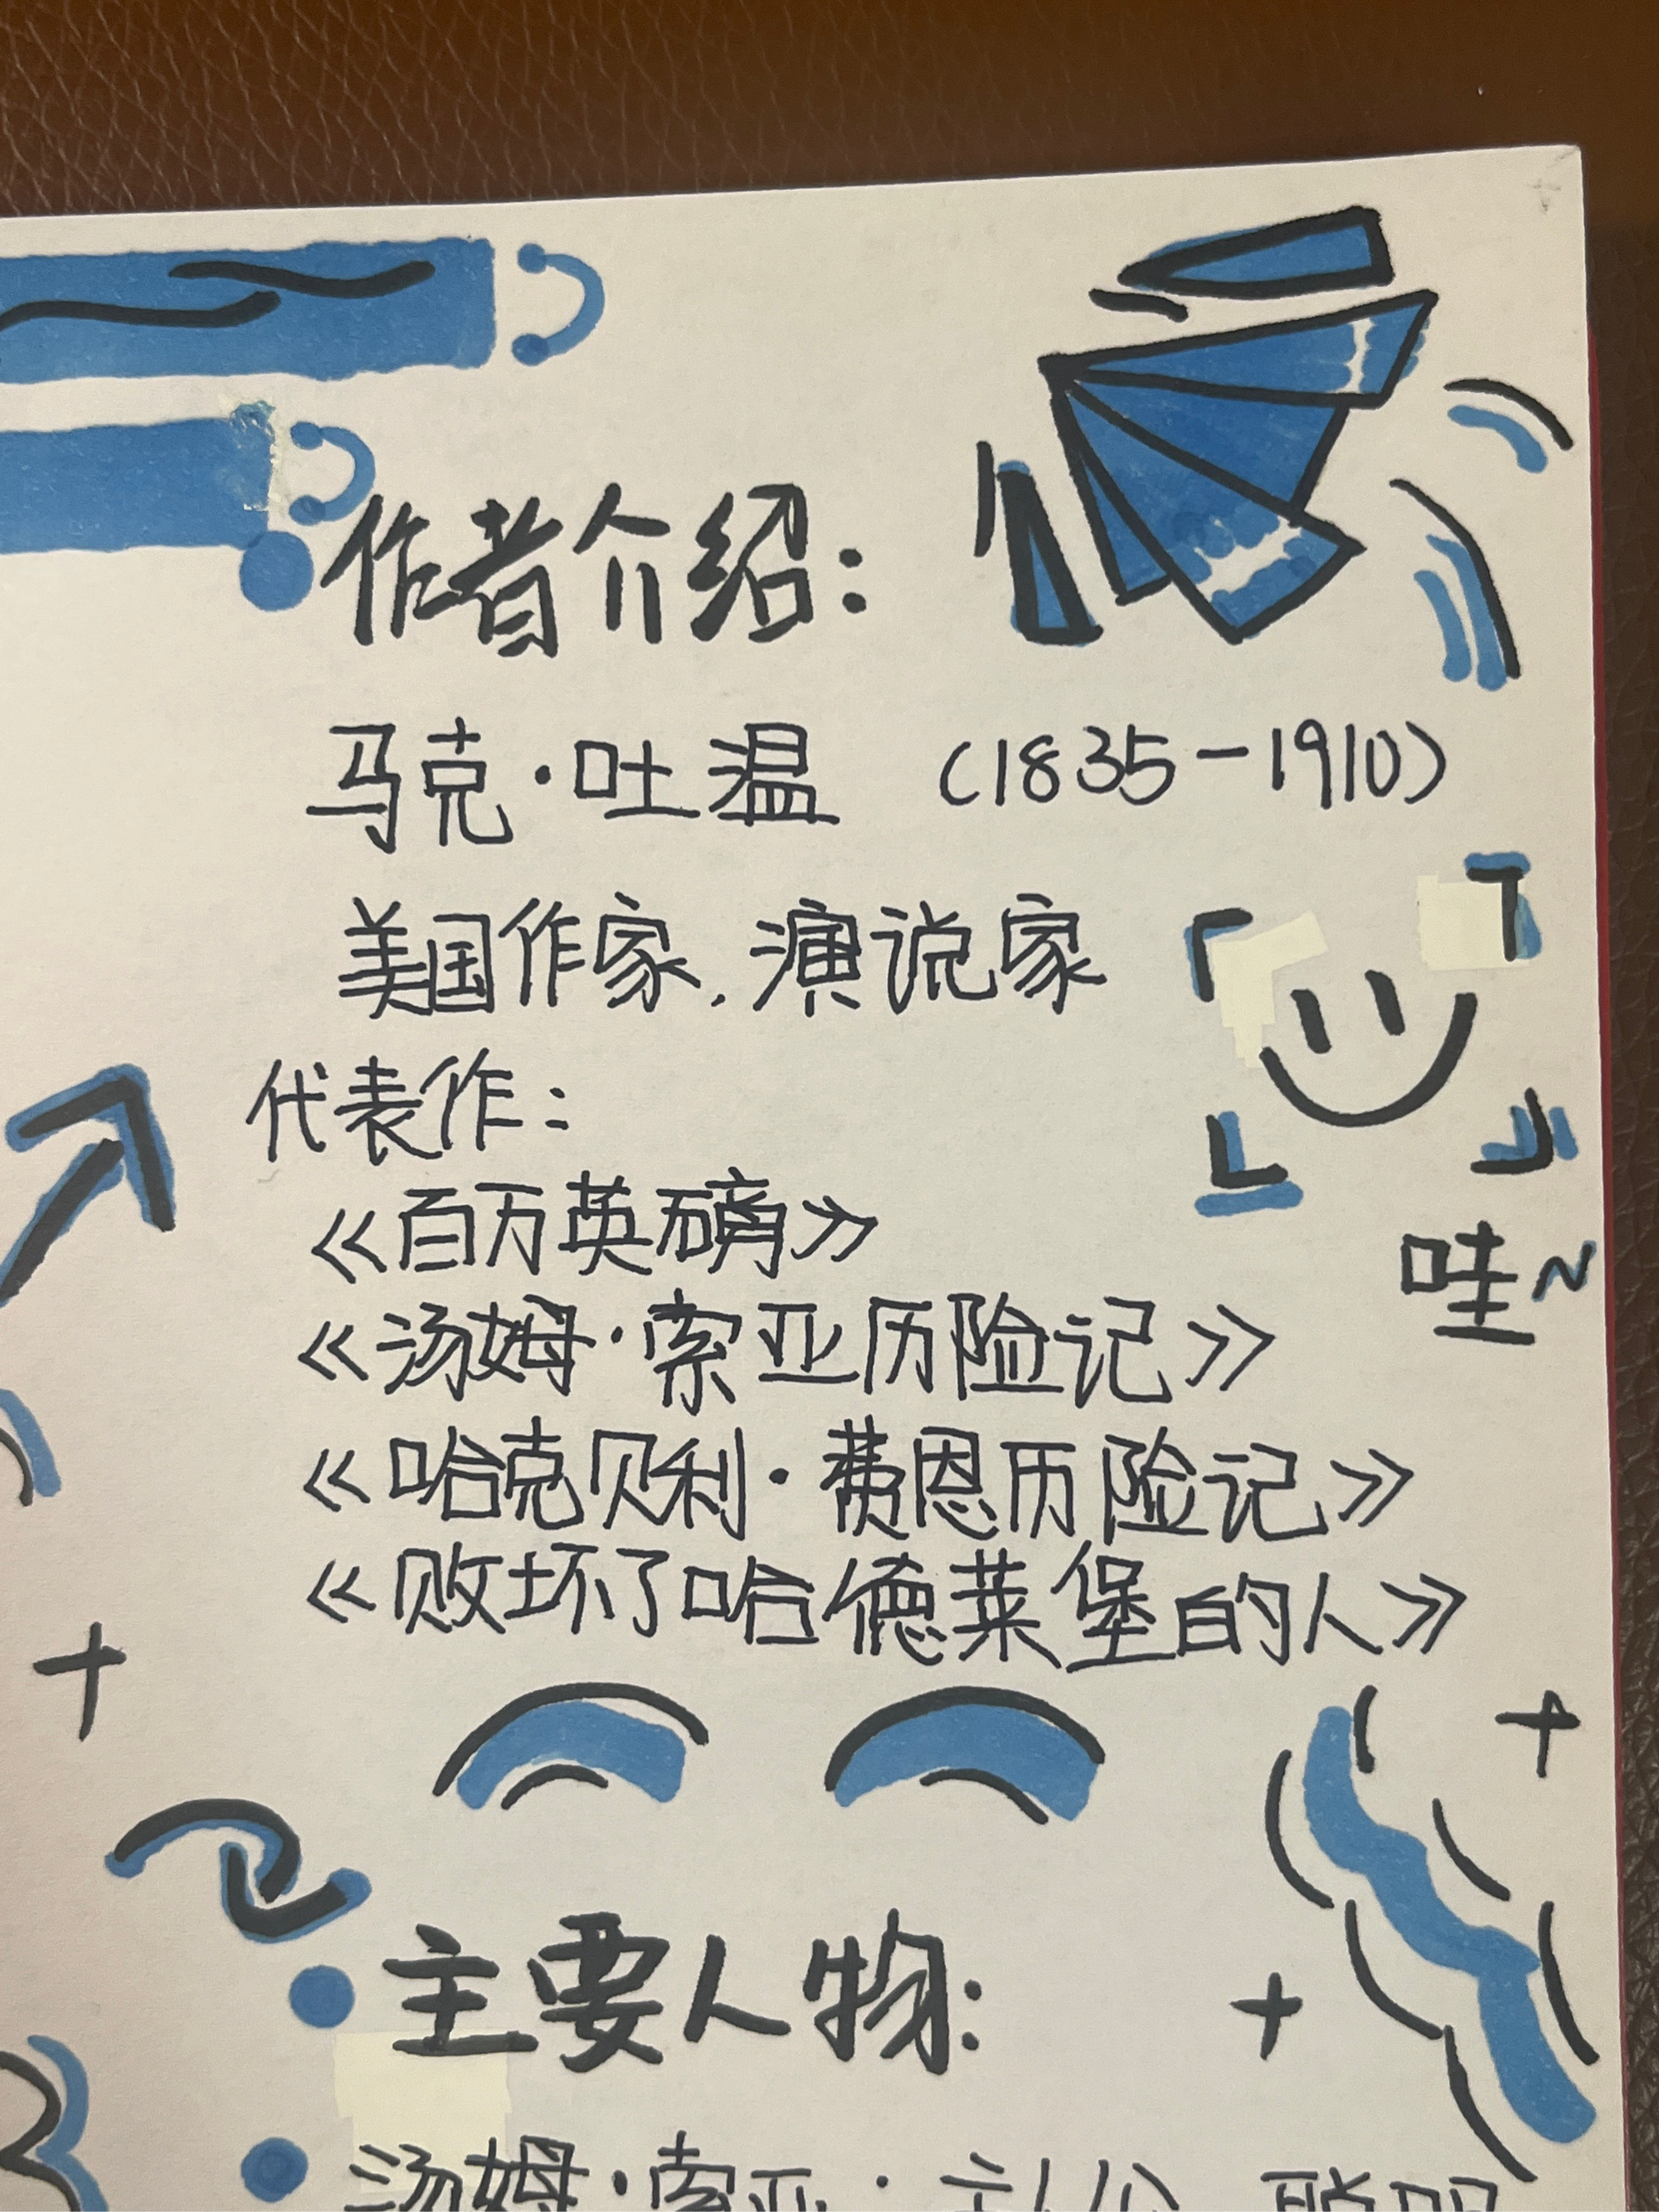 作者介绍：
马克·吐温 （1835-1910）
美国作家，演说家
代表作：
《百万英磅》
哇~
《汤姆·索亚历险记》
《哈克贝利·费恩历险记》
《败坏了哈德莱堡的人》
主要人物：
汤姆·索亚：